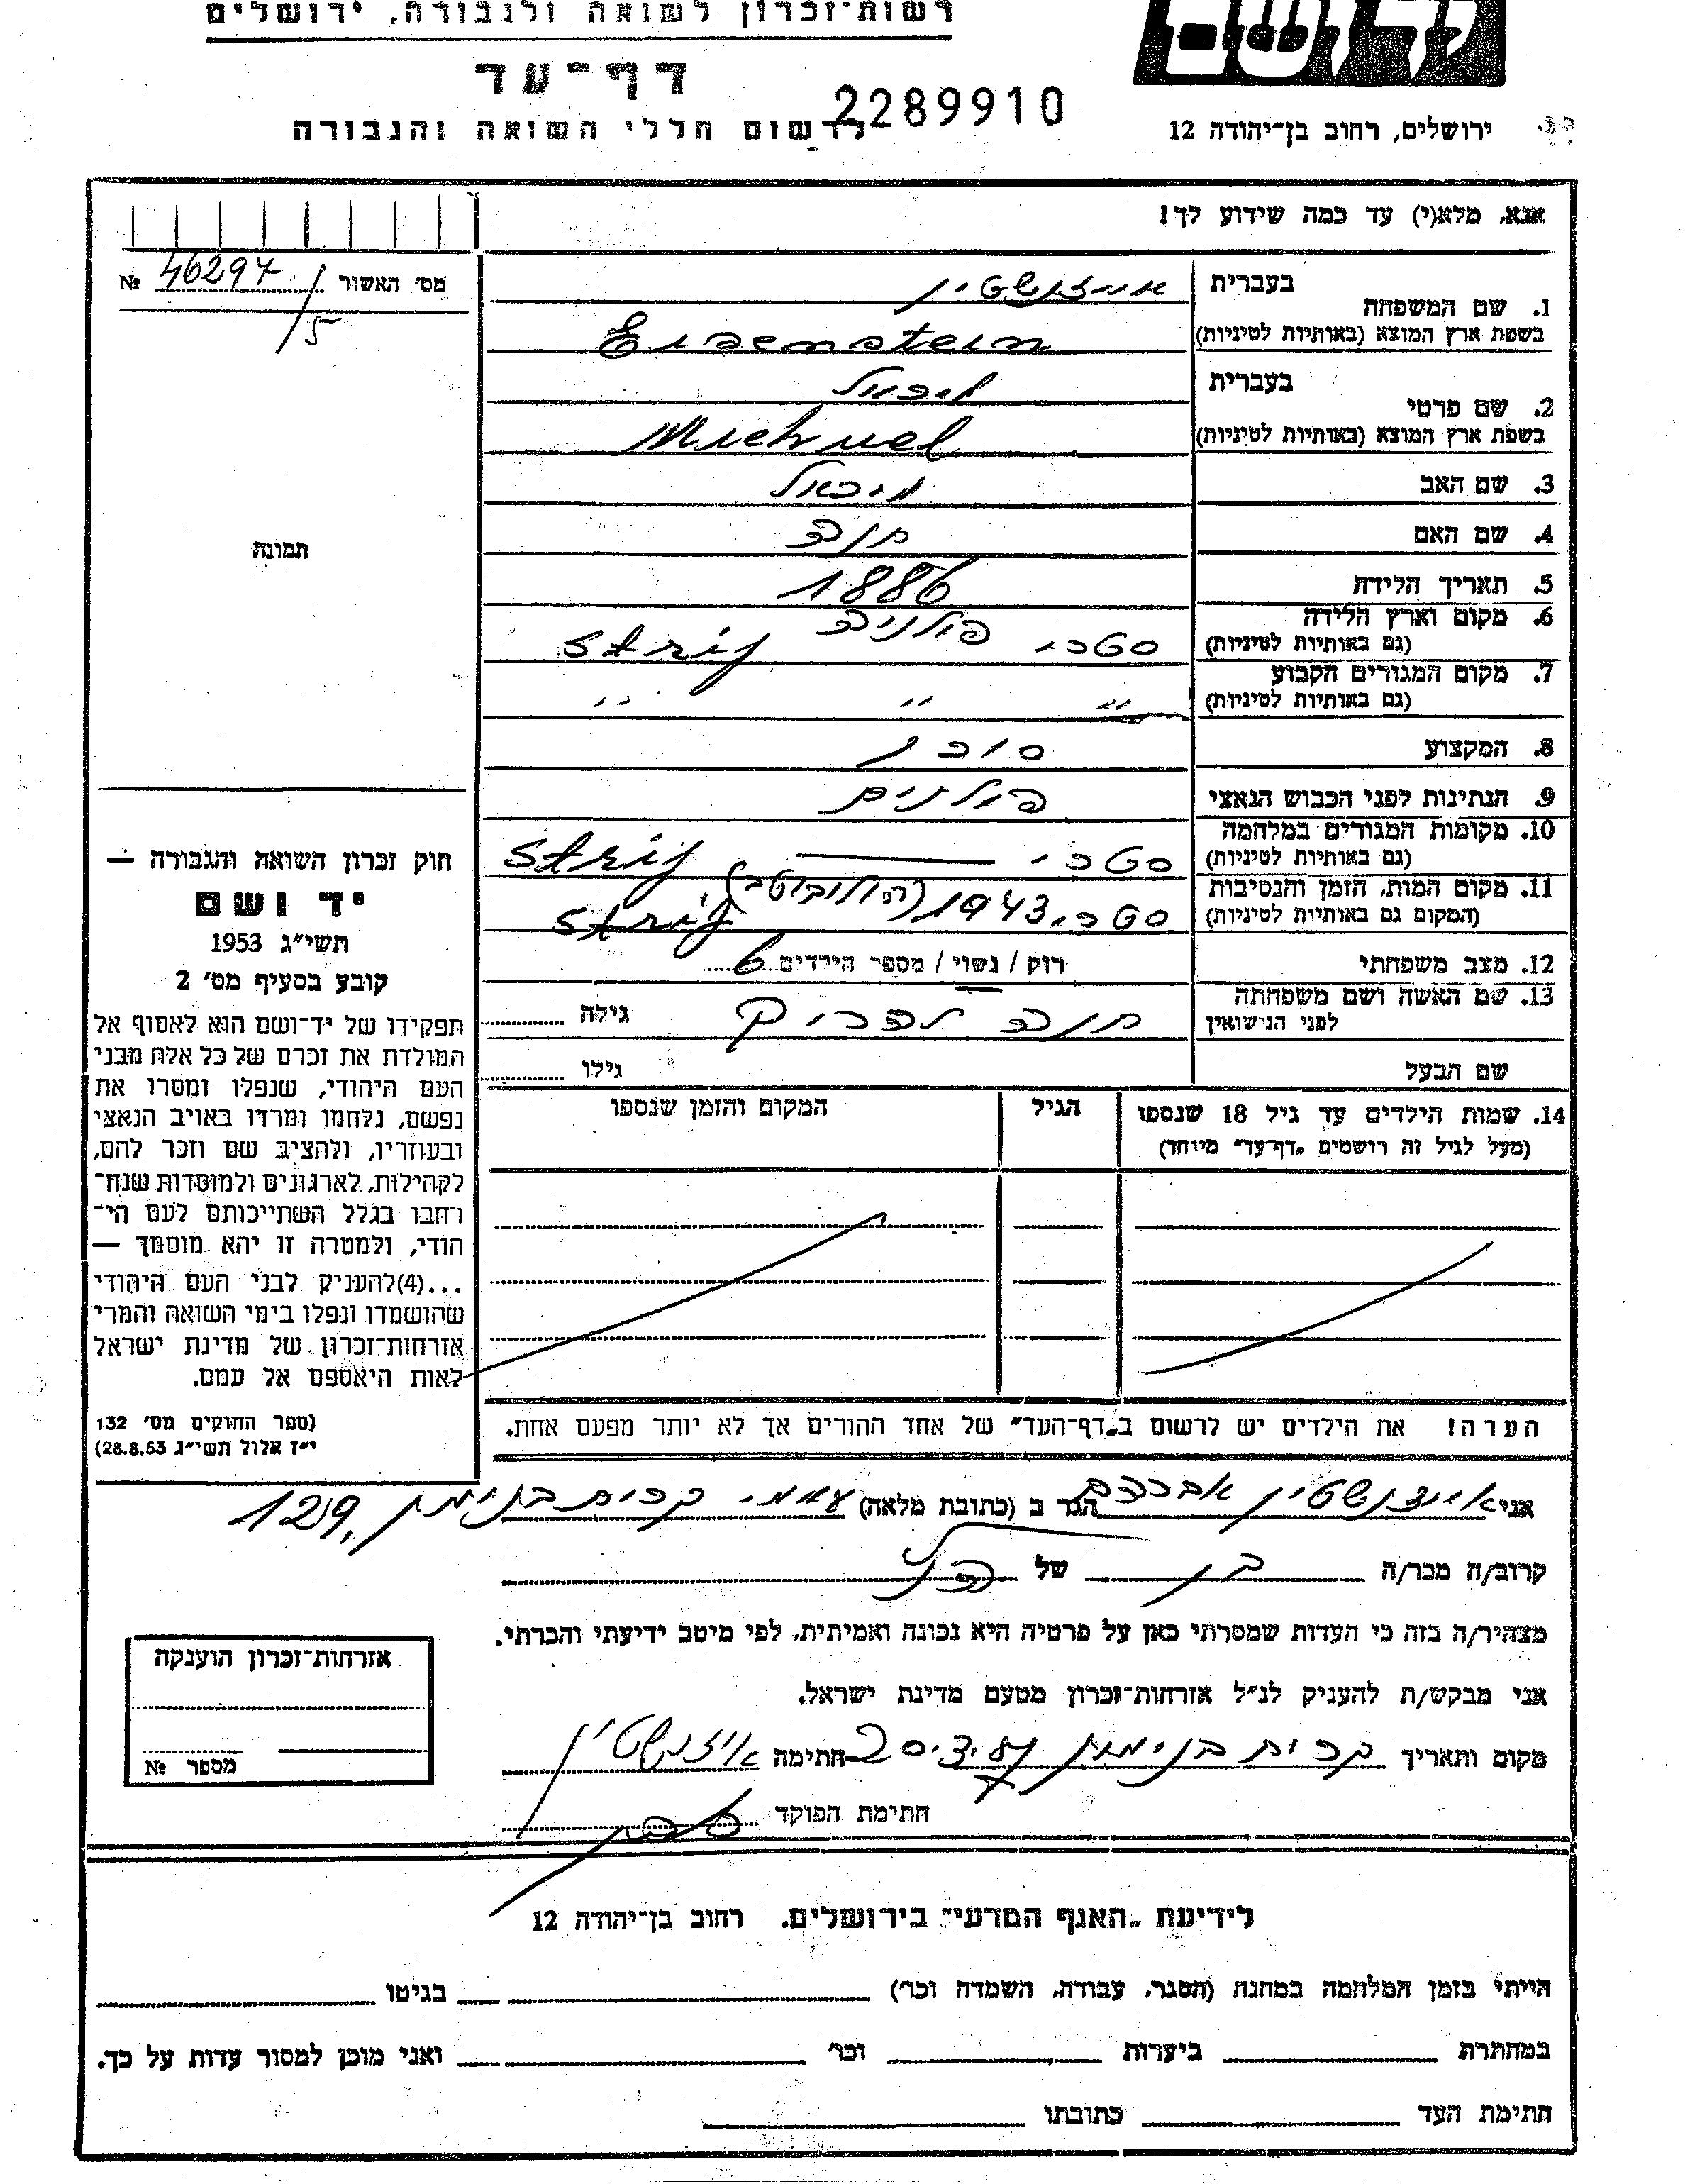 רשות־זכרון לשואה ולגבורה, ירושלים
דף־עד
2289910
לרשום חללי השואה והגבורה
ירושלים, רחוב בן־יהודה 12
אנא, מלא(י) עד כמה שידוע לך!
מס׳ האשור 46297/5 №
תמונה
בעברית אייזנשטיין
1. שם המשפחה
בשפת ארץ המוצא (באותיות לטיניות) Eisenstein
בעברית מיכאל
2. שם פרטי
בשפת ארץ המוצא (באותיות לטיניות) Michael
3. שם האב מיכאל
4. שם האם חנה
5. תאריך הלידה 1886
6. מקום וארץ הלידה
(גם באותיות לטיניות) סטרי פולניה Strij
7. מקום המגורים הקבוע
(גם באותיות לטיניות) " " "
8. המקצוע סוכן
9. הנתינות לפני הכבוש הנאצי פולנית
10. מקומות המגורים במלחמה
(גם באותיות לטיניות) סטרי — Strij
11. מקום המות, הזמן והנסיבות
(המקום גם באותיות לטיניות) סטרי, 1943 Strij
12. מצב משפחתי רוק / נשוי / מספר הילדים 6
13. שם האשה ושם משפחתה
לפני הנישואין חנה גילה
שם הבעל גילו
14. שמות הילדים עד גיל 18 שנספו
(מעל לגיל זה רושמים „דף־עד״ מיוחד)
הגיל
המקום והזמן שנספו
הערה! את הילדים יש לרשום ב„דף־העד״ של אחד ההורים אך לא יותר מפעם אחת.
חוק זכרון השואה והגבורה —
יד ושם
תשי״ג 1953
קובע בסעיף מס׳ 2
תפקידו של יד־ושם הוא לאסוף אל
המולדת את זכרם של כל אלה מבני
העם היהודי, שנפלו ומסרו את
נפשם, נלחמו ומרדו באויב הנאצי
ובעוזריו, ולהציב שם וזכר להם,
לקהילות, לארגונים ולמוסדות שנח־
רחבו בגלל השתייכותם לעם הי־
הודי, ולמטרה זו יהא מוסמך —
...(4)להעניק לבני העם היהודי
שהושמדו ונפלו בימי השואה והמרי
אזרחות־זכרון של מדינת ישראל
לאות היאספם אל עמם.
(ספר החוקים מס׳ 132
י״ז אלול תשי״ג 28.8.53)
אני אייזנשטיין אברהם הגר ב (כתובת מלאה) קרית בנימין 129
קרוב/ה מכר/ה בן של הנ״ל
מצהיר/ה בזה כי העדות שמסרתי כאן על פרטיה היא נכונה ואמיתית, לפי מיטב ידיעתי והכרתי.
אני מבקש/ת להעניק לנ״ל אזרחות־זכרון מטעם מדינת ישראל.
מקום ותאריך קרית בנימין חתימה אייזנשטיין
חתימת הפוקד
אזרחות־זכרון הוענקה
מספר №
לידיעת „האגף המדעי״ בירושלים. רחוב בן־יהודה 12
הייתי בזמן המלחמה במחנה (הסגר, עבודה, השמדה וכר׳) בגיטו
במחתרת ביערות וכר׳ ואני מוכן למסור עדות על כך.
חתימת העד כתובתו